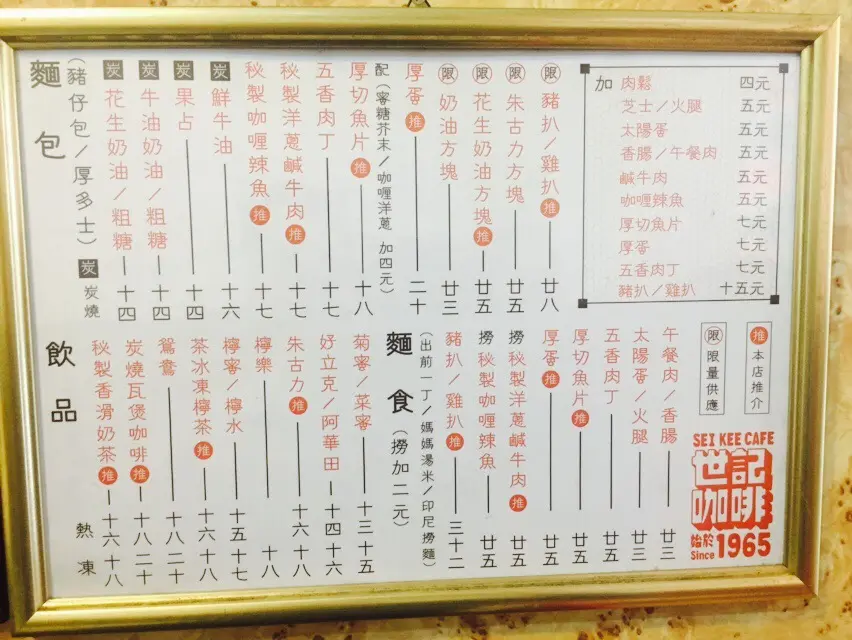 麵包
(豬仔包/厚多士) 炭 炭燒
炭 花生奶油/粗糖 十四
炭 牛油奶油/粗糖 十四
炭 果占 十四
炭 鮮牛油 十六
秘製咖喱辣魚 推 十七
秘製洋蔥鹹牛肉 推 十七
五香肉丁 十七
厚切魚片 推 十八
配(蜜糖芥末/咖喱洋蔥 加四元)
厚蛋 推 二十
限 奶油方塊 廿三
限 花生奶油方塊 推 廿五
限 朱古力方塊 廿五
限 豬扒/雞扒 推 廿八
加 肉鬆 四元
芝士/火腿 五元
太陽蛋 五元
香腸/午餐肉 五元
鹹牛肉 五元
咖喱辣魚 五元
厚切魚片 七元
厚蛋 七元
五香肉丁 七元
豬扒/雞扒 十五元
飲品 熱 凍
秘製香滑奶茶 推 十六 十八
炭燒瓦煲咖啡 推 十八 二十
鴛鴦 十八 二十
茶冰凍檸茶 推 十六 十八
檸蜜/檸水 十五 十七
檸樂 十八
朱古力 推 十六 十八
好立克/阿華田 十四 十六
菊蜜/菜蜜 十三 十五
麵食 (撈加二元)
(出前一丁/媽媽湯米/印尼撈麵)
豬扒/雞扒 推 三十二
撈 秘製咖喱辣魚 廿五
撈 秘製洋蔥鹹牛肉 推 廿五
厚蛋 推 廿五
厚切魚片 推 廿五
五香肉丁 廿五
太陽蛋/火腿 廿三
午餐肉/香腸 廿三
限 限量供應
推 本店推介
SEI KEE CAFE
世記
咖啡
始於
Since 1965